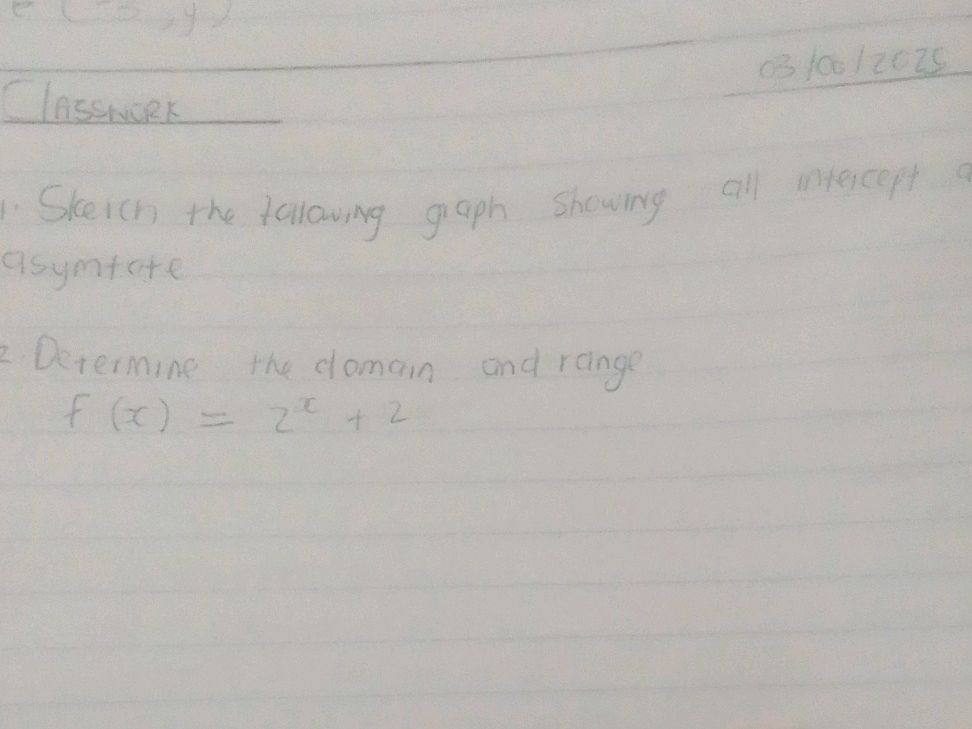 03/06/2025
CLASSWORK
1. Sketch the following graph showing all intercept
asymtote
2. Determine the domain and range
f (x) = 2ˣ + 2